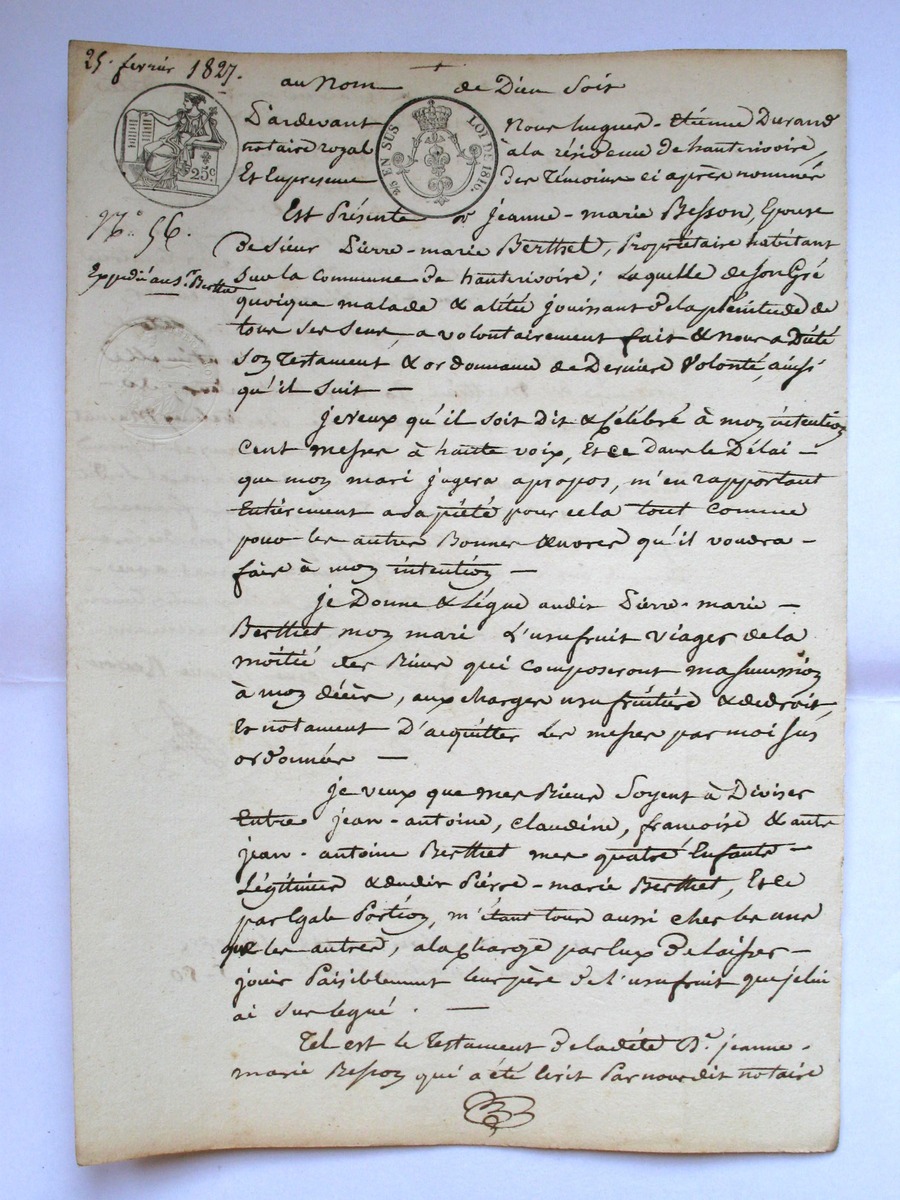 25. fevrier 1827.
au Nom de Dieu Soit
25c.
25 EN SUS LOI DE 1816.
Pardevant Nous hugues-étienne Durand
notaire royal à la résidence de hauterivoire,
Et En presence des Témoins ci après nommés
N.° 56.
Expédié au S.r Berthet
Est Présente D.e jeanne-marie Besson, Epouse
de Sieur Pierre-marie Berthet, Propriétaire habitant
sur la commune de hauterivoire; Laquelle de son Gré
quoique malade & alitée jouissant de la plénitude de
tous ses sens, a volontairement fait & nous a Dicté
son Testament & ordonnance de Derniere Volonté, ainsi
qu'il suit —
je Veux qu'il soit Dit & Célébré à mon intention
cent messes à haute voix, Et ce dans le Délai —
que mon mari jugera apropos, m'en rapportant
Entièrement a sa piété pour cela tout comme
pour les autres Bonnes Œuvres qu'il voudra —
faire à mon intention —
je Donne & Légue audit Pierre-marie —
Berthet mon mari L'usufruit viager de la
moitié des Biens qui composeront ma succession
à mon décès, aux charges usufruitière & de droit,
Et notament D'acquitter les messes par moi sus
ordonnées —
je veux que mes Biens Soyent à Diviser
Entre jean-antoine, claudine, francoise & autre
jean-antoine Berthet mes quatre Enfants —
Légitimes & dudit Pierre-marie Berthet, Et ce
par Egale Portion, m'étant tous aussi chers les uns
que les autres, a la charge par Eux De laisser —
jouir Paisiblement leur père de l'usufruit que je lui
ai sus legué. —
Tel est le Testament de ladite D.e jeanne-
marie Besson qui a été Ecrit Par nous dit notaire